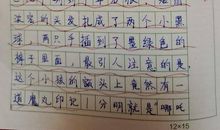 浓密的头发扎成了两个小羹
球，两只手插到了墨绿色的
裤子里面，最引人注意的是，
这个小孩的额头上竟然有一
块魔丸印记！分明就是哪吒
12×15